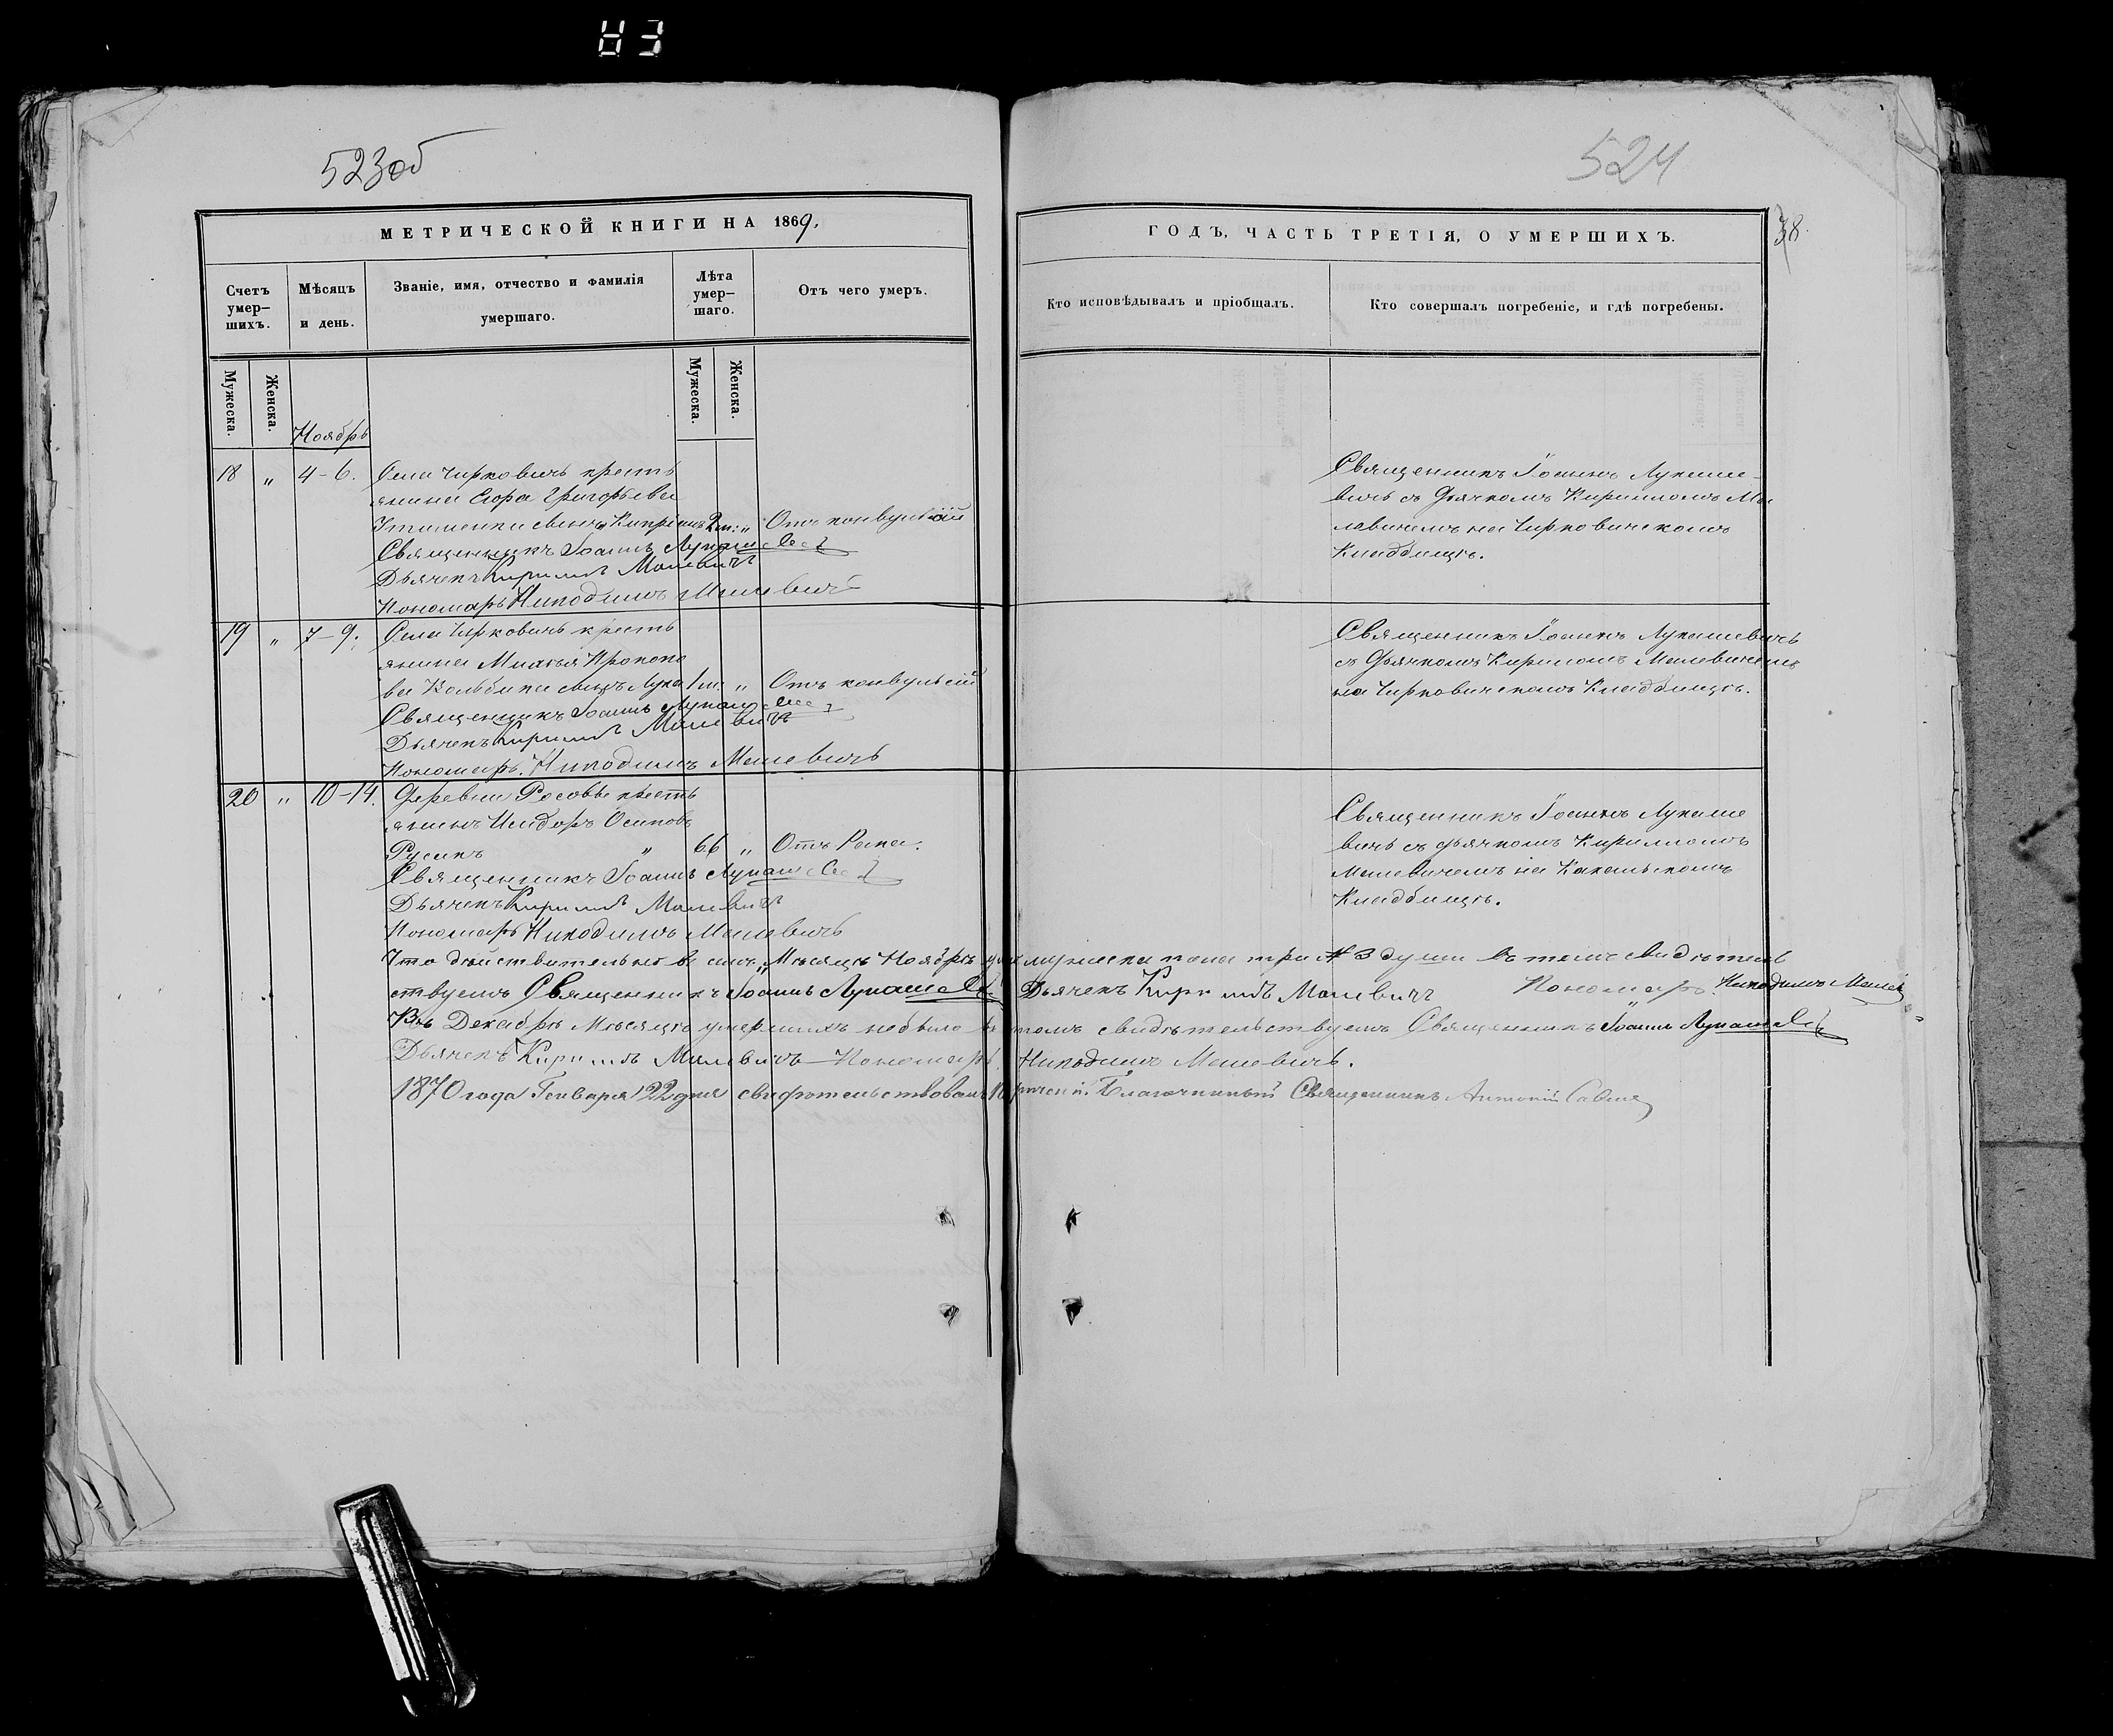 83
523об
524
38.
МЕТРИЧЕСКОЙ КНИГИ НА 1869.
ГОДЪ, ЧАСТЬ ТРЕТІЯ, О УМЕРШИХЪ.
Счетъ умер-
шихъ.
Мѣсяцъ
и день.
Званіе, имя, отчество и фамилія
умершаго.
Лѣта
умер-
шаго.
Отъ чего умеръ.
Кто исповѣдывалъ и пріобщалъ.
Кто совершалъ погребеніе, и гдѣ погребены.
Мужеска.
Женска.
Мужеска.
Женска.
Ноябрь
18 " 4-6. Села Чирковичь кресть
янина Сидора Григорьева
сынъ Кипріанъ 2 м. " Отъ конвульсій
Священникъ Іоаннъ Лукашевичъ
Дьячекъ Кириллъ Малевичъ
Пономарь Никодимъ Малевичъ
Священникъ Іоаннъ Лукаше-
вичь съ Дьячкомъ Кирилломъ Ма
левичемъ на Чирковичскомъ
Кладбищѣ.
19 " 7-9. Села Чирковичь кресть
янина Прокопо
ва сынъ Лука 1 м. " Отъ конвульсій
Священникъ Іоаннъ Лукашевичъ
Дьячекъ Кириллъ Малевичъ
Пономарь Никодимъ Малевичъ
Священникъ Іоаннъ Лукашевичь
съ Дьячкомъ Кириломъ Малевичемъ
на Чирковичскомъ Кладбищѣ.
20 " 10-14. Деревни кресть
янинъ Исидоръ Осиповъ
Русакъ " 66 " Отъ Рака.
Священникъ Іоаннъ Лукашевичъ
Дьячекъ Кириллъ Малевичъ
Пономарь Никодимъ Малевичъ
Священникъ Іоаннъ Лукаше
вичь съ дьячкомъ Кирилломъ
Малевичемъ на Какальскомъ
Кладбищѣ.
Что дѣйствительно въ семъ Мѣсяцѣ Ноябрѣ мужеска пола три № 3 души въ томъ свидѣтель
ствуемъ Священникъ Іоаннъ Лукашевичъ Дьячекъ Кириллъ Малевичъ Пономарь Никодимъ Малевич
Въ Декабрѣ Мѣсяцѣ умершихъ небыло въ томъ свидѣтельствуемъ Священникъ Іоаннъ Лукашевичъ
Дьячекъ Кириллъ Малевичъ Пономарь Никодимъ Малевичь.
1870 года Генваря 22 дня свидѣтельствовалъ Благочинный Священникъ Антоній Савич